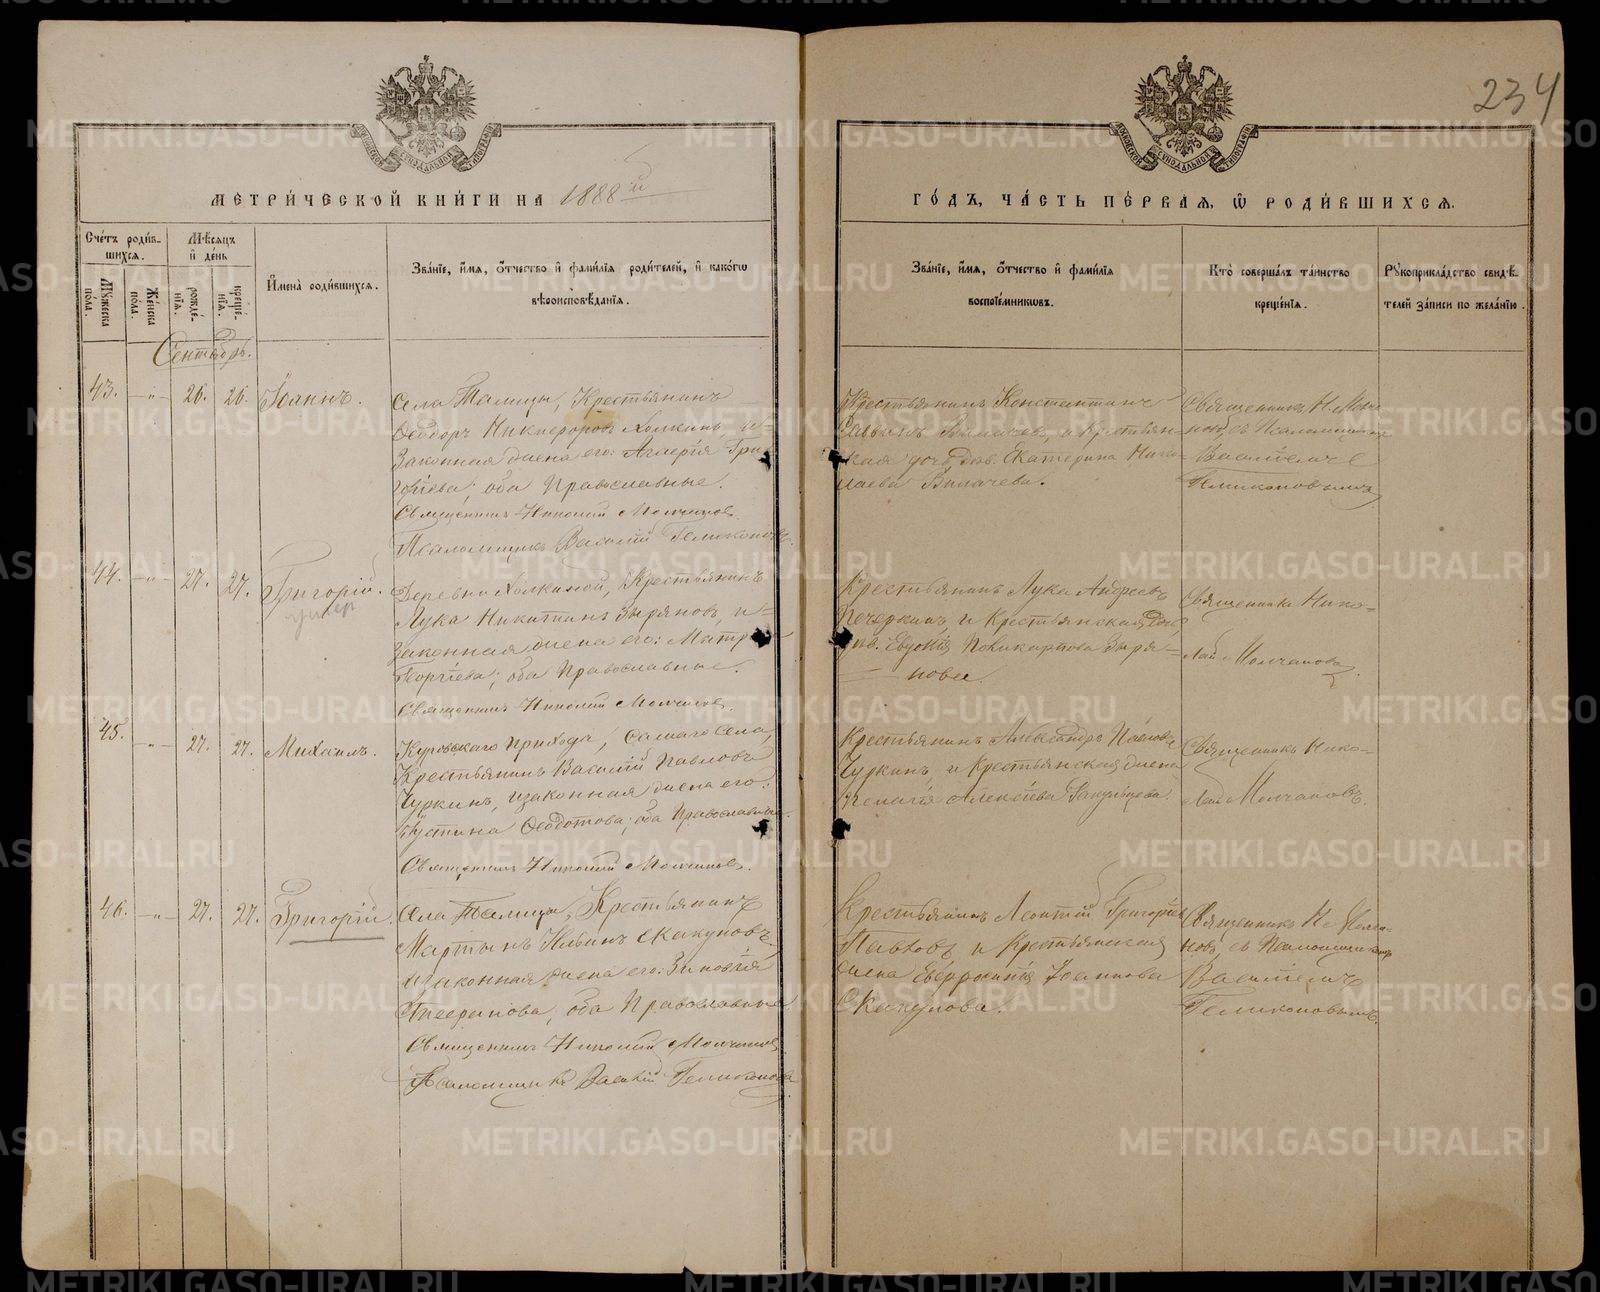 234
МЕТРИ́ЧЕСКОЙ КНИ́ГИ НА 1888й
ГО́ДЪ, ЧА́СТЬ ПЕ́РВАЯ, Ѡ҆ РОДИ́ВШИХСѦ.
Сче́тъ роди́в-
шихсѧ.
Мꙋжеска по́ла.
Же́нска по́ла.
Мѣ́сѧцъ
и҆ де́нь
рожде́-
нїѧ.
креще́-
нїѧ.
И҆мена̀ роди́вшихсѧ.
Зва́нїе, и҆́мѧ, ѻ҆́тчество и҆ фами́лїѧ роди́телей, и҆ како́гѡ
вѣроисповѣ́данїѧ.
Зва́нїе, и҆́мѧ, ѻ҆́тчество и҆ фами́лїѧ
воспрїе́мникѡвъ.
Кто̀ соверша́лъ та́инство
креще́нїѧ.
Рꙋкоприкла́дство свидѣ́-
телей за́писи по жела́нїю.
Сентябрь.
43. -"- 26. 26. Іоаннъ.
Села Талицы, Крестьянинъ
Ѳеодоръ Никифоровъ Холкинъ, и
Законная жена его: Гри-
горіева; оба Православные.
Священникъ Николай Молчановъ.
Псаломщикъ Василій Геликоновъ.
Крестьянинъ Константинъ
и Крестьян-
ская дочь дѣв. Екатерина Нико-
лаева
Священникъ Н. Молча-
новъ, съ Псаломщикомъ
Василіемъ
Геликоновымъ
44. -"- 27. 27. Григорій.
умер
Деревни Холкиной, Крестьянинъ
Лука Никитинъ Зыряновъ, и
Законная жена его:
Георгіева; оба Православные.
Священникъ Николай Молчановъ.
Крестьянинъ Лука Андреевъ
Печеркинъ, и Крестьянская дочь
дѣв. Евдокія Поликарпова Зыря-
нова.
Священникъ Нико-
лай Молчановъ
45. -"- 27. 27. Михаилъ.
Куровскаго Прихода, Самаго Села,
Крестьянинъ Василій Павловъ
Чуркинъ, и законная жена его:
Іустина Ѳеодотова; оба Православные.
Священникъ Николай Молчановъ.
Крестьянинъ Александръ Павловъ
Чуркинъ, и Крестьянская жена
Пелагія Алексіева
Священникъ Нико-
лай Молчановъ.
46. -"- 27. 27. Григорій.
Села Талицы, Крестьянинъ
Мартынъ Ильинъ Скакуновъ
и законная жена его: Зиновія
оба Православные
Священникъ Николай Молчановъ
Псаломщикъ Василій Геликоновъ
Крестьянинъ Леонтій Григорьевъ
и Крестьянская
жена Евфросинія Іоаннова
Скакунова.
Священникъ Н. Молча-
новъ, съ Псаломщикомъ
Василіемъ
Геликоновымъ.
METRIKI.GASO-URAL.RU